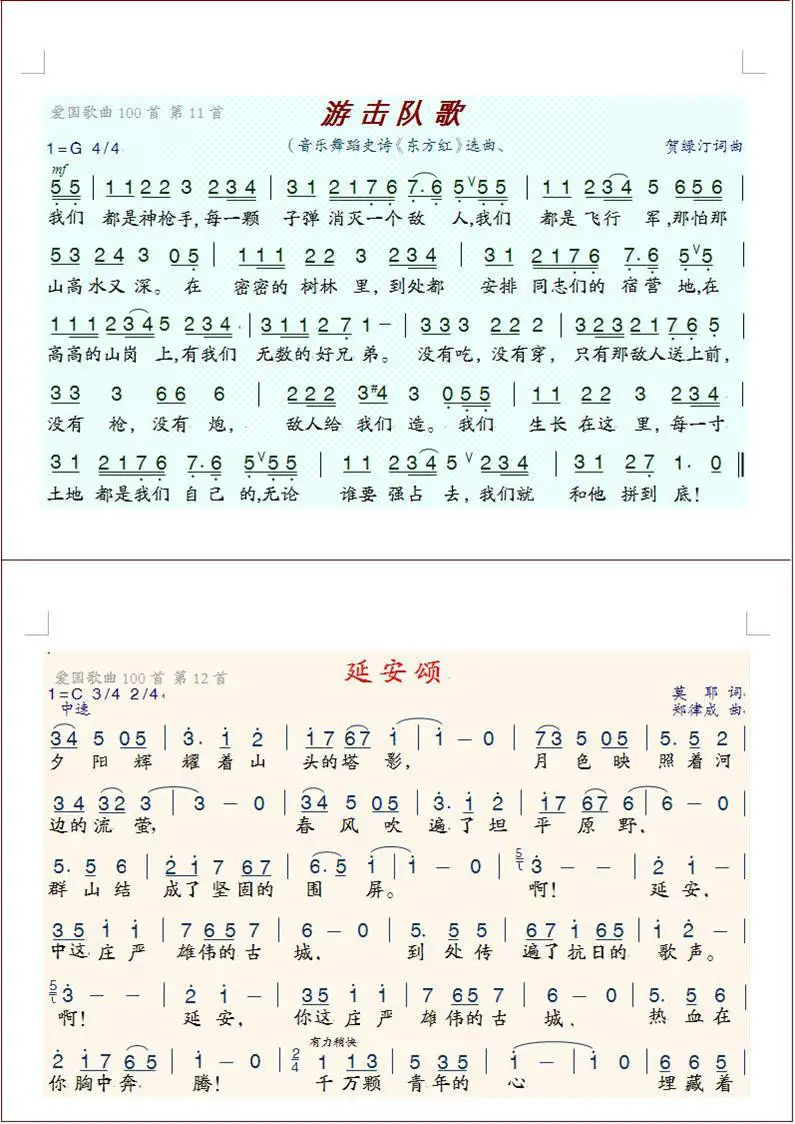 爱国歌曲100首 第11首
游击队歌
1=G 4/4
（音乐舞蹈史诗《东方红》选曲、
贺绿汀词曲
mf
5 5 | 1 1 2 2 3 2 3 4 | 3 1 2 1 7 6 7·6 5 V 5 5 | 1 1 2 3 4 5 6 5 6
我们 都是神枪手,每一颗 子弹 消灭一个敌 人,我们 都是 飞行 军,那怕那
5 3 2 4 3 0 5 | 1 1 1 2 2 3 2 3 4 | 3 1 2 1 7 6 7·6 5 V 5
山高水又 深。在 密密的 树林 里，到处都 安排 同志们的 宿营 地,在
1 1 1 2 3 4 5 2 3 4 | 3 1 1 2 7 1 – | 3 3 3 2 2 2 | 3 2 3 2 1 7 6 5
高高的山岗 上,有我们 无数的好兄 弟。 没有吃，没有穿， 只有那敌人送上前,
3 3 3 6 6 6 | 2 2 2 3 #4 3 0 5 5 | 1 1 2 2 3 2 3 4
没有 枪，没有 炮， 敌人给 我们 造。我们 生长 在这 里，每一寸
3 1 2 1 7 6 7·6 5 V 5 5 | 1 1 2 3 4 5 V 2 3 4 | 3 1 2 7 1· 0 ‖
土地 都是我们 自己 的,无论 谁要 强占 去，我们就 和他 拼到 底！
爱国歌曲100首 第12首
延安颂
1=C 3/4 2/4
莫 耶 词
中速
郑律成 曲
3 4 5 0 5 | 3· 1 2 | 1 7 6 7 1 | 1 – 0 | 7 3 5 0 5 | 5· 5 2
夕 阳 辉 耀着山 头的塔 影， 月 色映 照着河
3 4 3 2 3 | 3 – 0 | 3 4 5 0 5 | 3· 1 2 | 1 7 6 7 6 | 6 – 0
边的流 萤， 春 风 吹 遍了 坦 平 原 野、
5· 5 6 | 2 1 7 6 7 | 6· 5 1 | 1 – 0 | 5 3 – – | 2 1 –
群山结 成了 坚固的 围 屏。 啊！ 延安、
3 5 1 1 | 7 6 5 7 | 6 – 0 | 5· 5 5 | 6 7 1 6 5 | 1 2 –
中这 庄严 雄伟的古 城、 到 处传 遍了抗日的 歌声。
5 3 – – | 2 1 – | 3 5 1 1 | 7 6 5 7 | 6 – 0 | 5· 5 6
啊！ 延安， 你这 庄严 雄伟的古 城、 热 血在
2 1 7 6 5 | 1 – 0 | 2/4 有力稍快 1 1 3 | 5 3 5 | 1 – | 1 0 | 6 6 5
你胸中奔 腾！ 千万颗 青年的 心 埋藏着